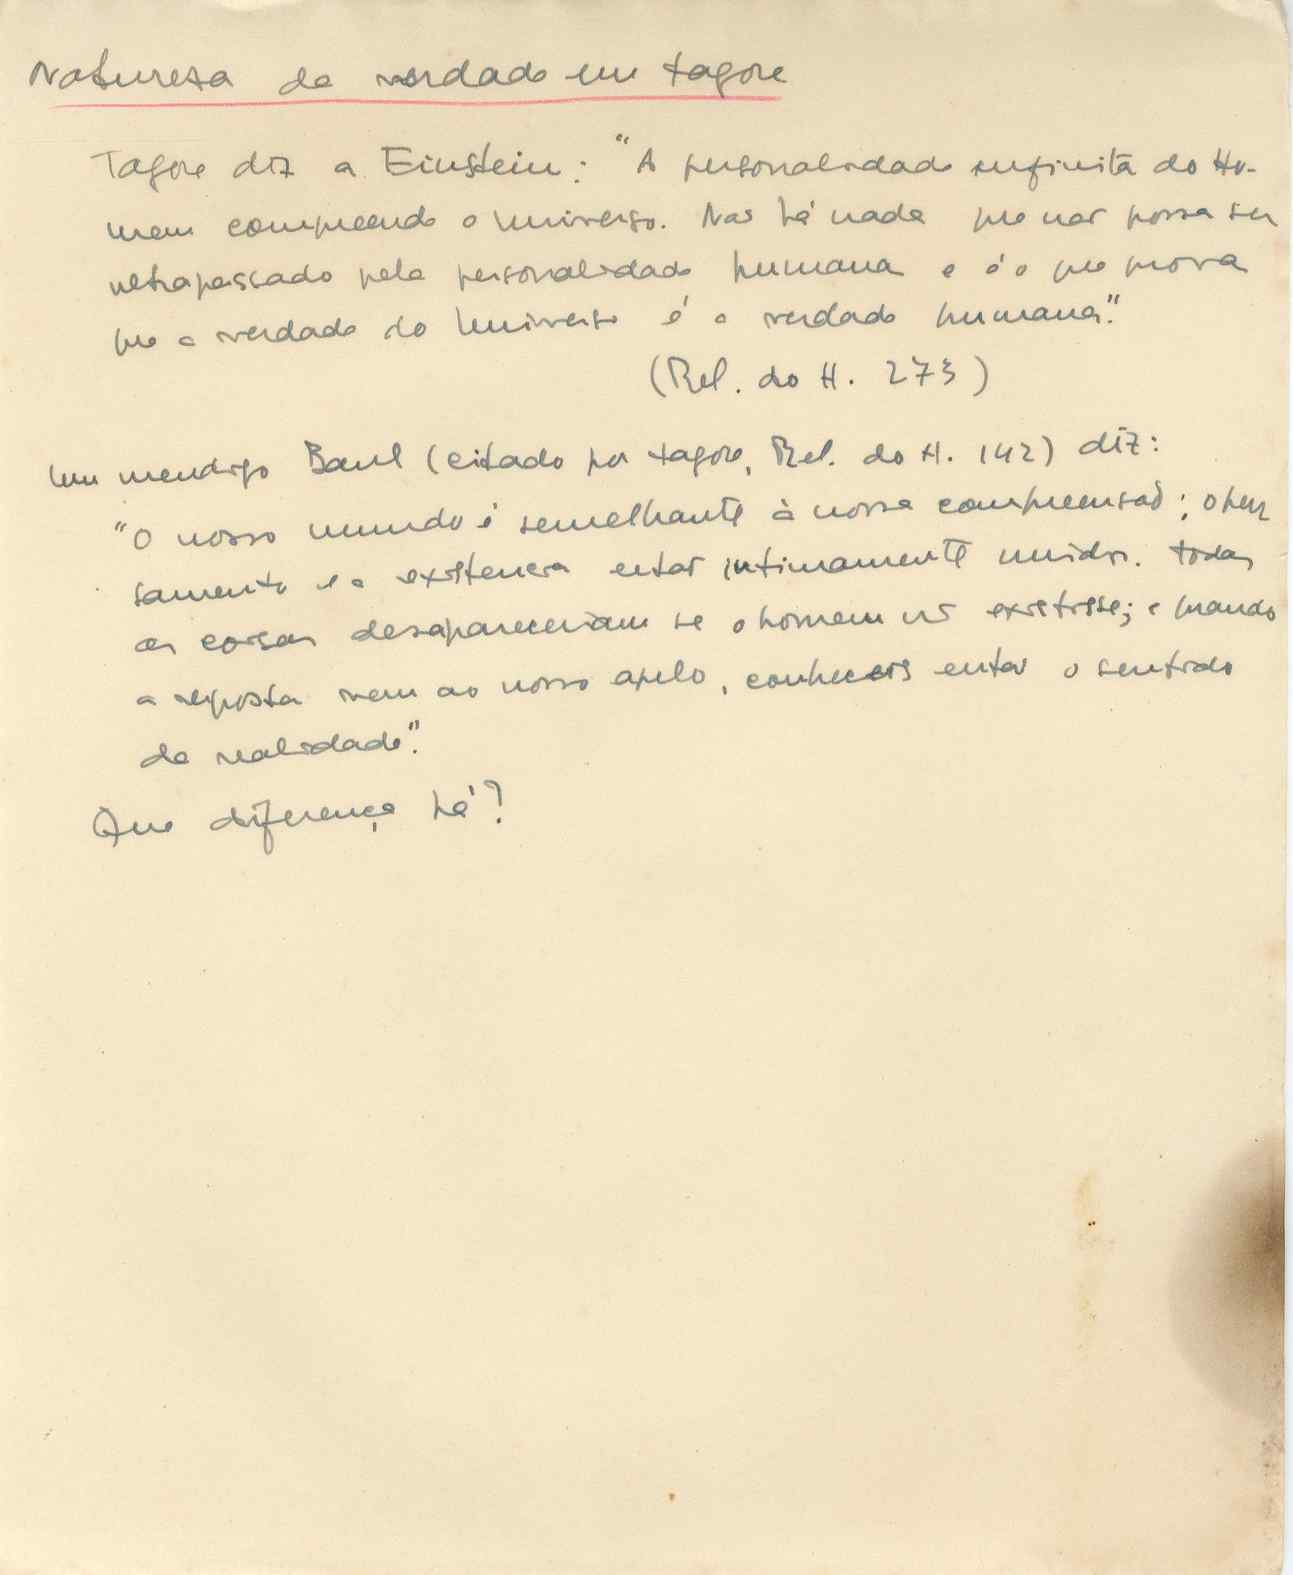 Natureza da verdade em Tagore
Tagore diz a Einstein: "A personalidade infinita do Ho-
mem compreende o Universo. Não há nada que não possa ser
ultrapassado pela personalidade humana e é o que prova
que a verdade do Universo é a verdade humana."
(Rel. do H. 273)
Um mendigo Baul (citado por Tagore, Rel. do H. 142) diz:
"O nosso mundo é semelhante à nossa compreensão; o pen
samento e a existencia estão intimamente unidos. Todas
as coisas desapareceriam se o homem não existisse; e quando
a resposta vem ao nosso apelo, conheceis então o sentido
da realidade."
Que diferença há?